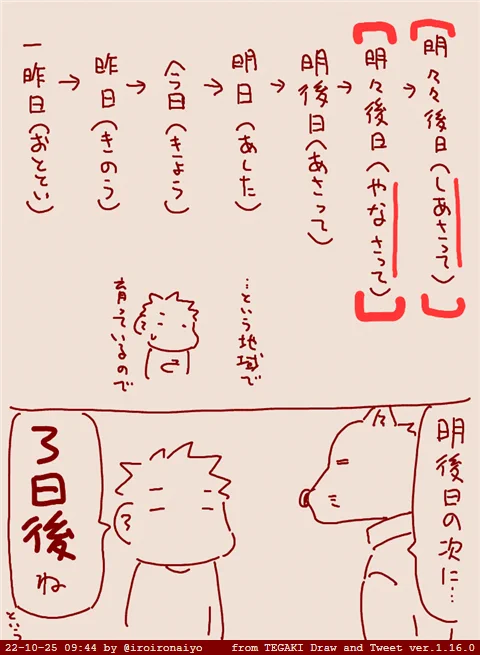 一昨日(おととい)
→昨日(きのう)
→今日(きょう)
→明日(あした)
→明後日(あさって)
→明々後日(やなさって)
→明々々後日(しあさって)
…という地域で
育っているので
明後日の次に…
3日後
ね
という
22-10-25 09:44 by @iroironaiyo from TEGAKI Draw and Tweet ver.1.16.0